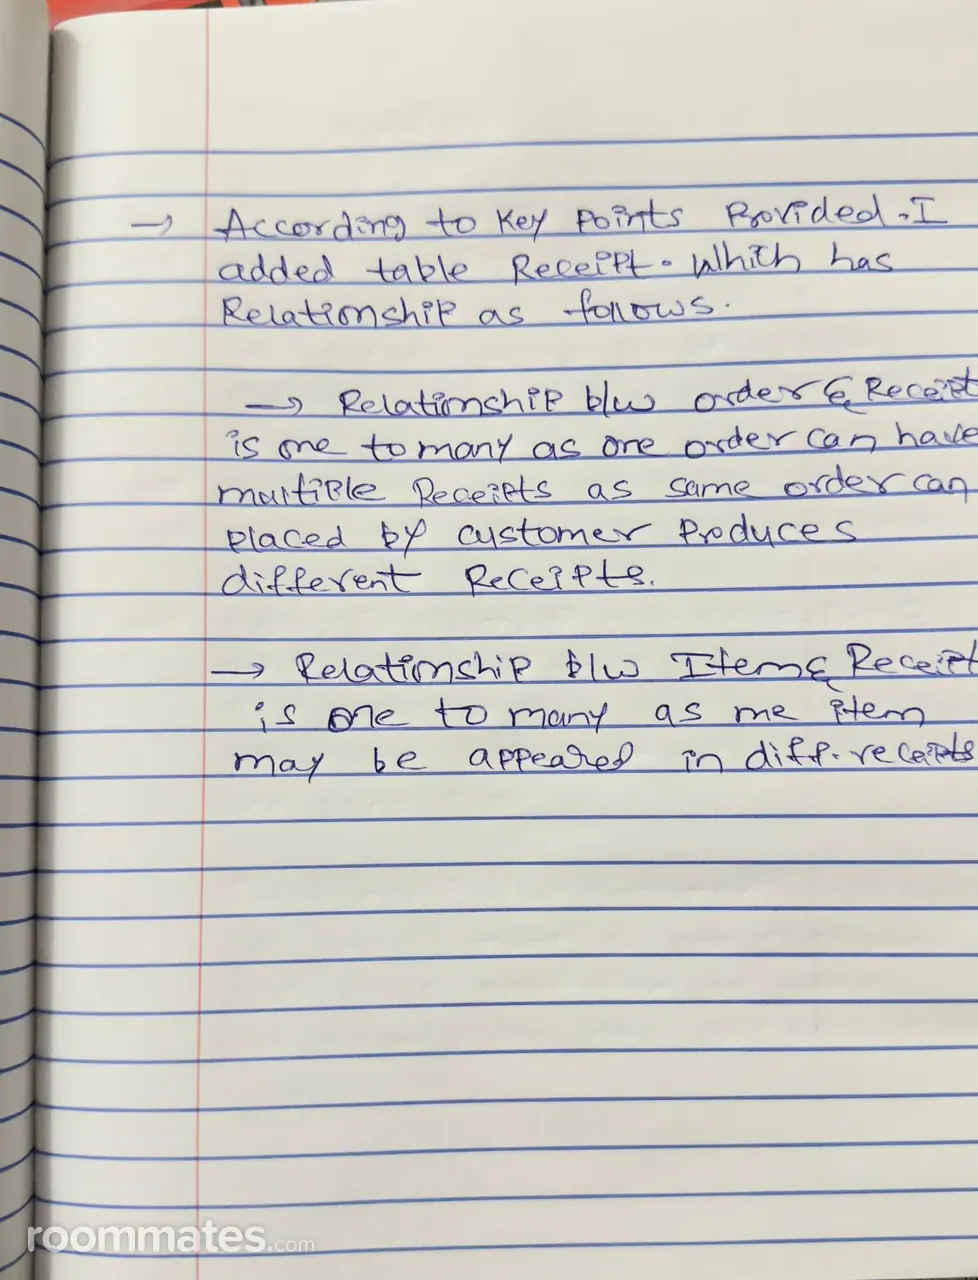 → According to Key Points Provided. I
added table Receipt. Which has
Relationship as follows.
→ Relationship b/w order & Receipt
is one to many as one order can have
multiple Receipts as same order can
placed by customer Produces
different Receipts.
→ Relationship b/w Item & Receipt
is one to many as one item
may be appeared in diff. receipts
roommates.com